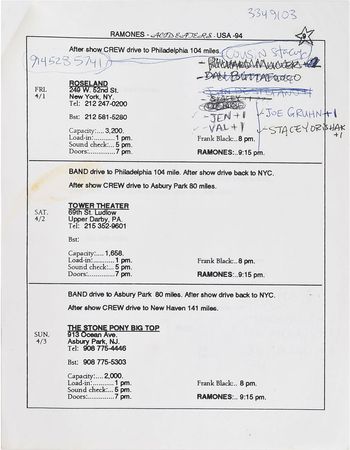 3349103
RAMONES - ACID EATERS. USA -94
After show CREW drive to Philadelphia 104 miles.
9145285741
COUSIN Stacey
DAN BUTTAFUOCO
FRI. 4/1
ROSELAND
249 W. 52nd St.
New York, NY
Tel: 212 247-0200
Bst: 212 581-5280
- JEN +1
- VAL +1
JOE GRUHN +1
- STACEY DRISHAK +1
Capacity:.... 3,200.
Load-in:...........1 pm.
Sound check:... 5 pm.
Doors:............. 7 pm.
Frank Black:.. 8 pm.
RAMONES:..9:15 pm.
BAND drive to Philadelphia 104 mile. After show drive back to NYC.
After show CREW drive to Asbury Park 80 miles.
SAT. 4/2
TOWER THEATER
69th St. Ludlow
Upper Darby, PA.
Tel: 215 352-9601
Bst:
Capacity:.... 1,658.
Load-in:............1 pm.
Sound check:... 5 pm.
Doors:............. 7 pm.
Frank Black:.. 8 pm.
RAMONES:..9:15 pm.
BAND drive to Asbury Park 80 miles. After show drive back to NYC.
After show CREW drive to New Haven 141 miles.
SUN. 4/3
THE STONE PONY BIG TOP
913 Ocean Ave.
Asbury Park, NJ.
Tel: 908 775-4446
Bst: 908 775-5303
Capacity:.... 2,000.
Load-in:............1 pm.
Sound check:... 5 pm.
Doors:............. 7 pm.
Frank Black:... 8 pm.
RAMONES:.. 9:15 pm.